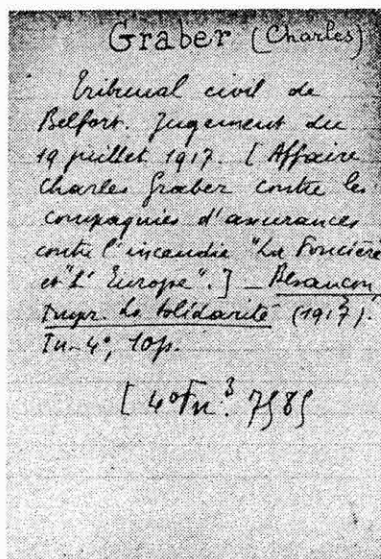 Graber (Charles)
Tribunal civil de
Belfort. Jugement du
19 juillet 1917. [Affaire
Charles Graber contre les
compagnies d'assurances
contre l'incendie "La Foncière
et "L'Europe".] _ Besançon,
Impr. La Solidarité (1917).
In-4°, 10 p.
[4° Fn.³ 7585